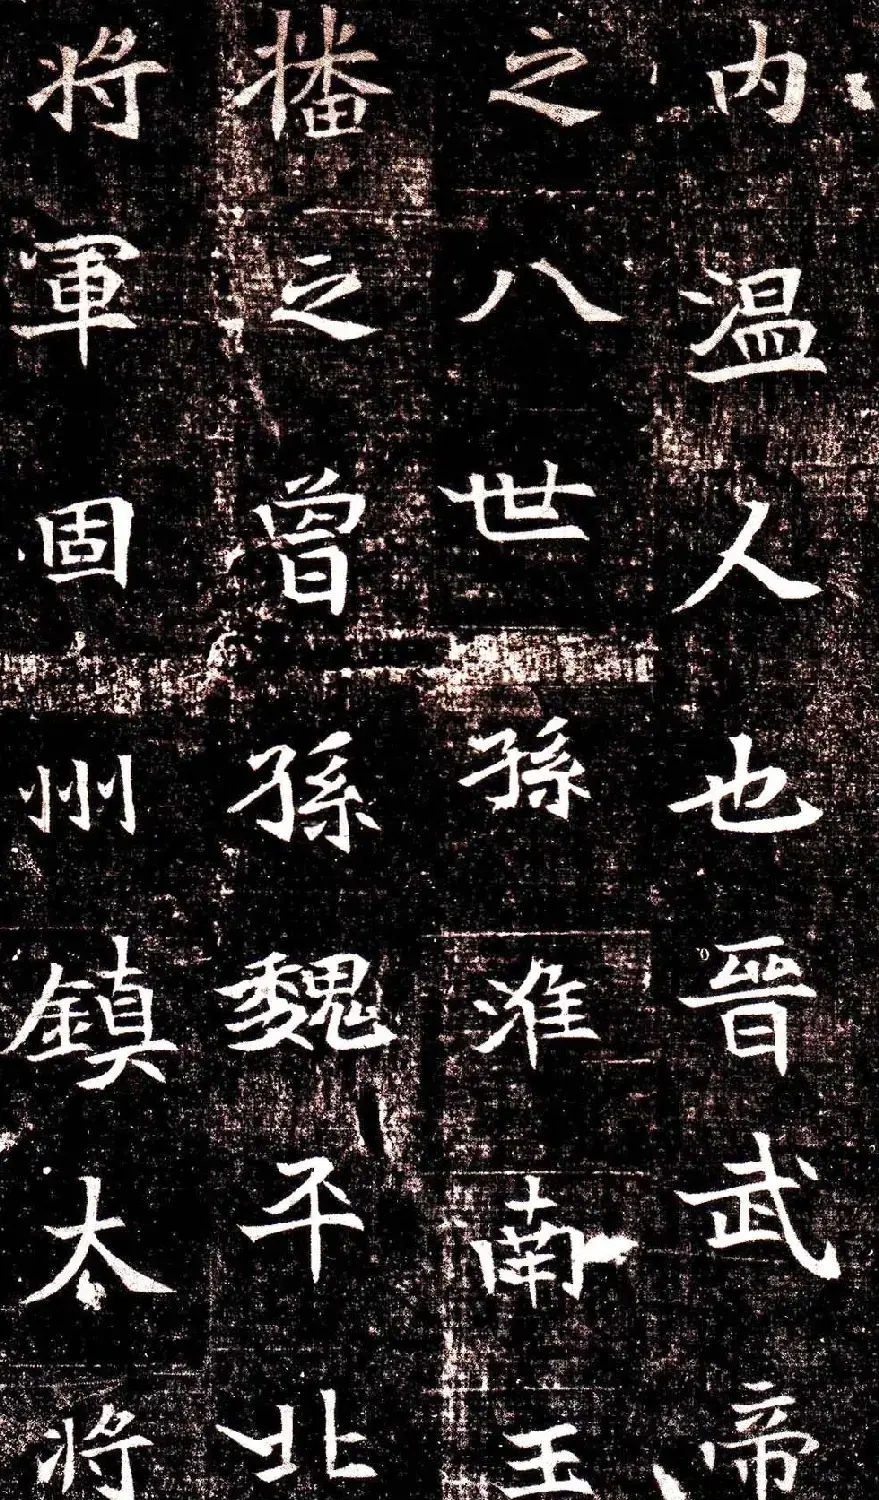 内温人也晉武帝
之八世孫淮南王
播之曾孫魏平北
將軍固州鎮大將